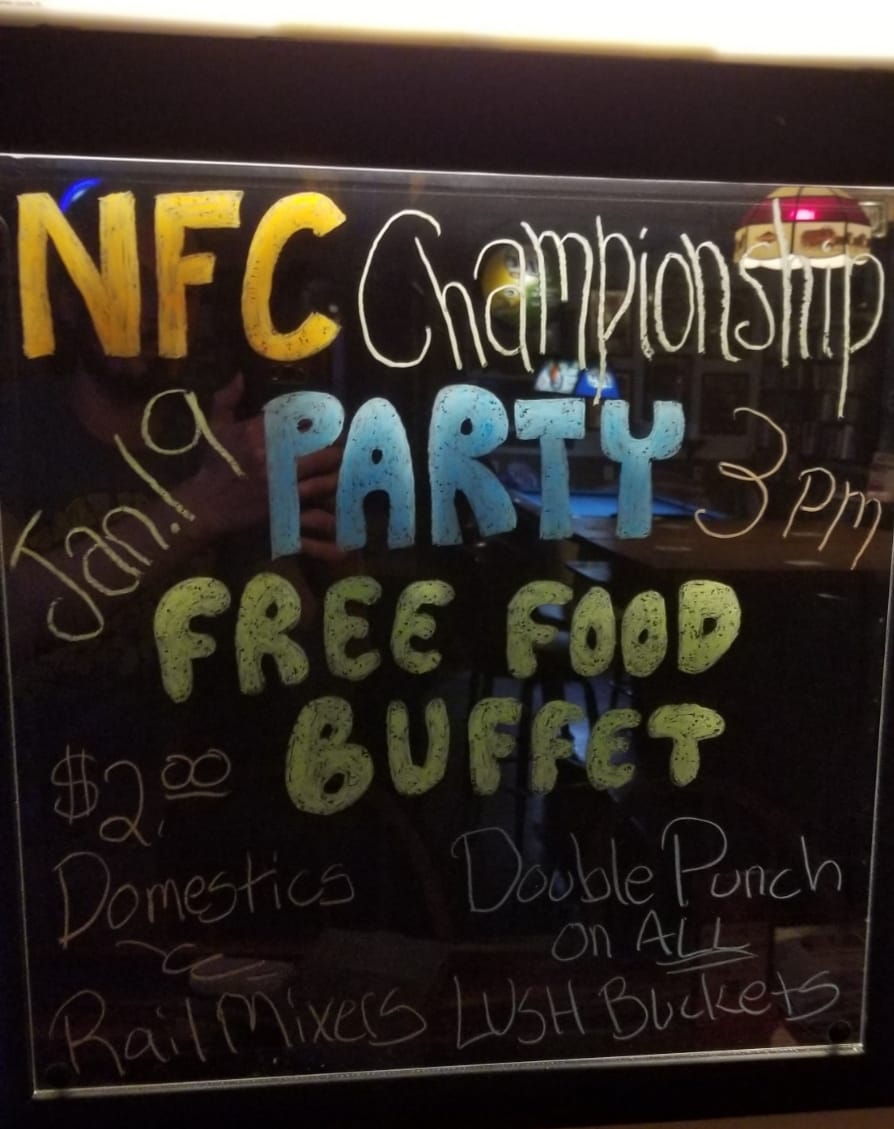 NFC Championship
Jan. 19 PARTY 3 pm
FREE FOOD
BUFFET
$2.00
Domestics
Rail Mixers
Double Punch
on ALL
LUSH Buckets